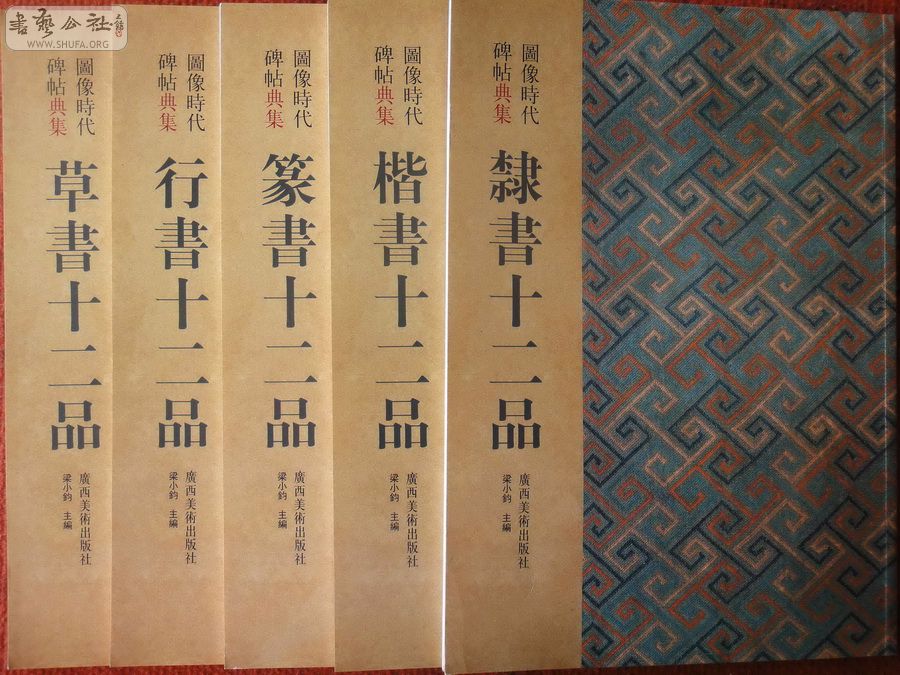 書藝公社
WWW.SHUFA.ORG
圖像時代
碑帖典集
隸書十二品
廣西美術出版社
梁小鈞 主編
圖像時代
碑帖典集
楷書十二品
廣西美術出版社
梁小鈞 主編
圖像時代
碑帖典集
篆書十二品
廣西美術出版社
梁小鈞 主編
圖像時代
碑帖典集
行書十二品
廣西美術出版社
梁小鈞 主編
圖像時代
碑帖典集
草書十二品
廣西美術出版社
梁小鈞 主編